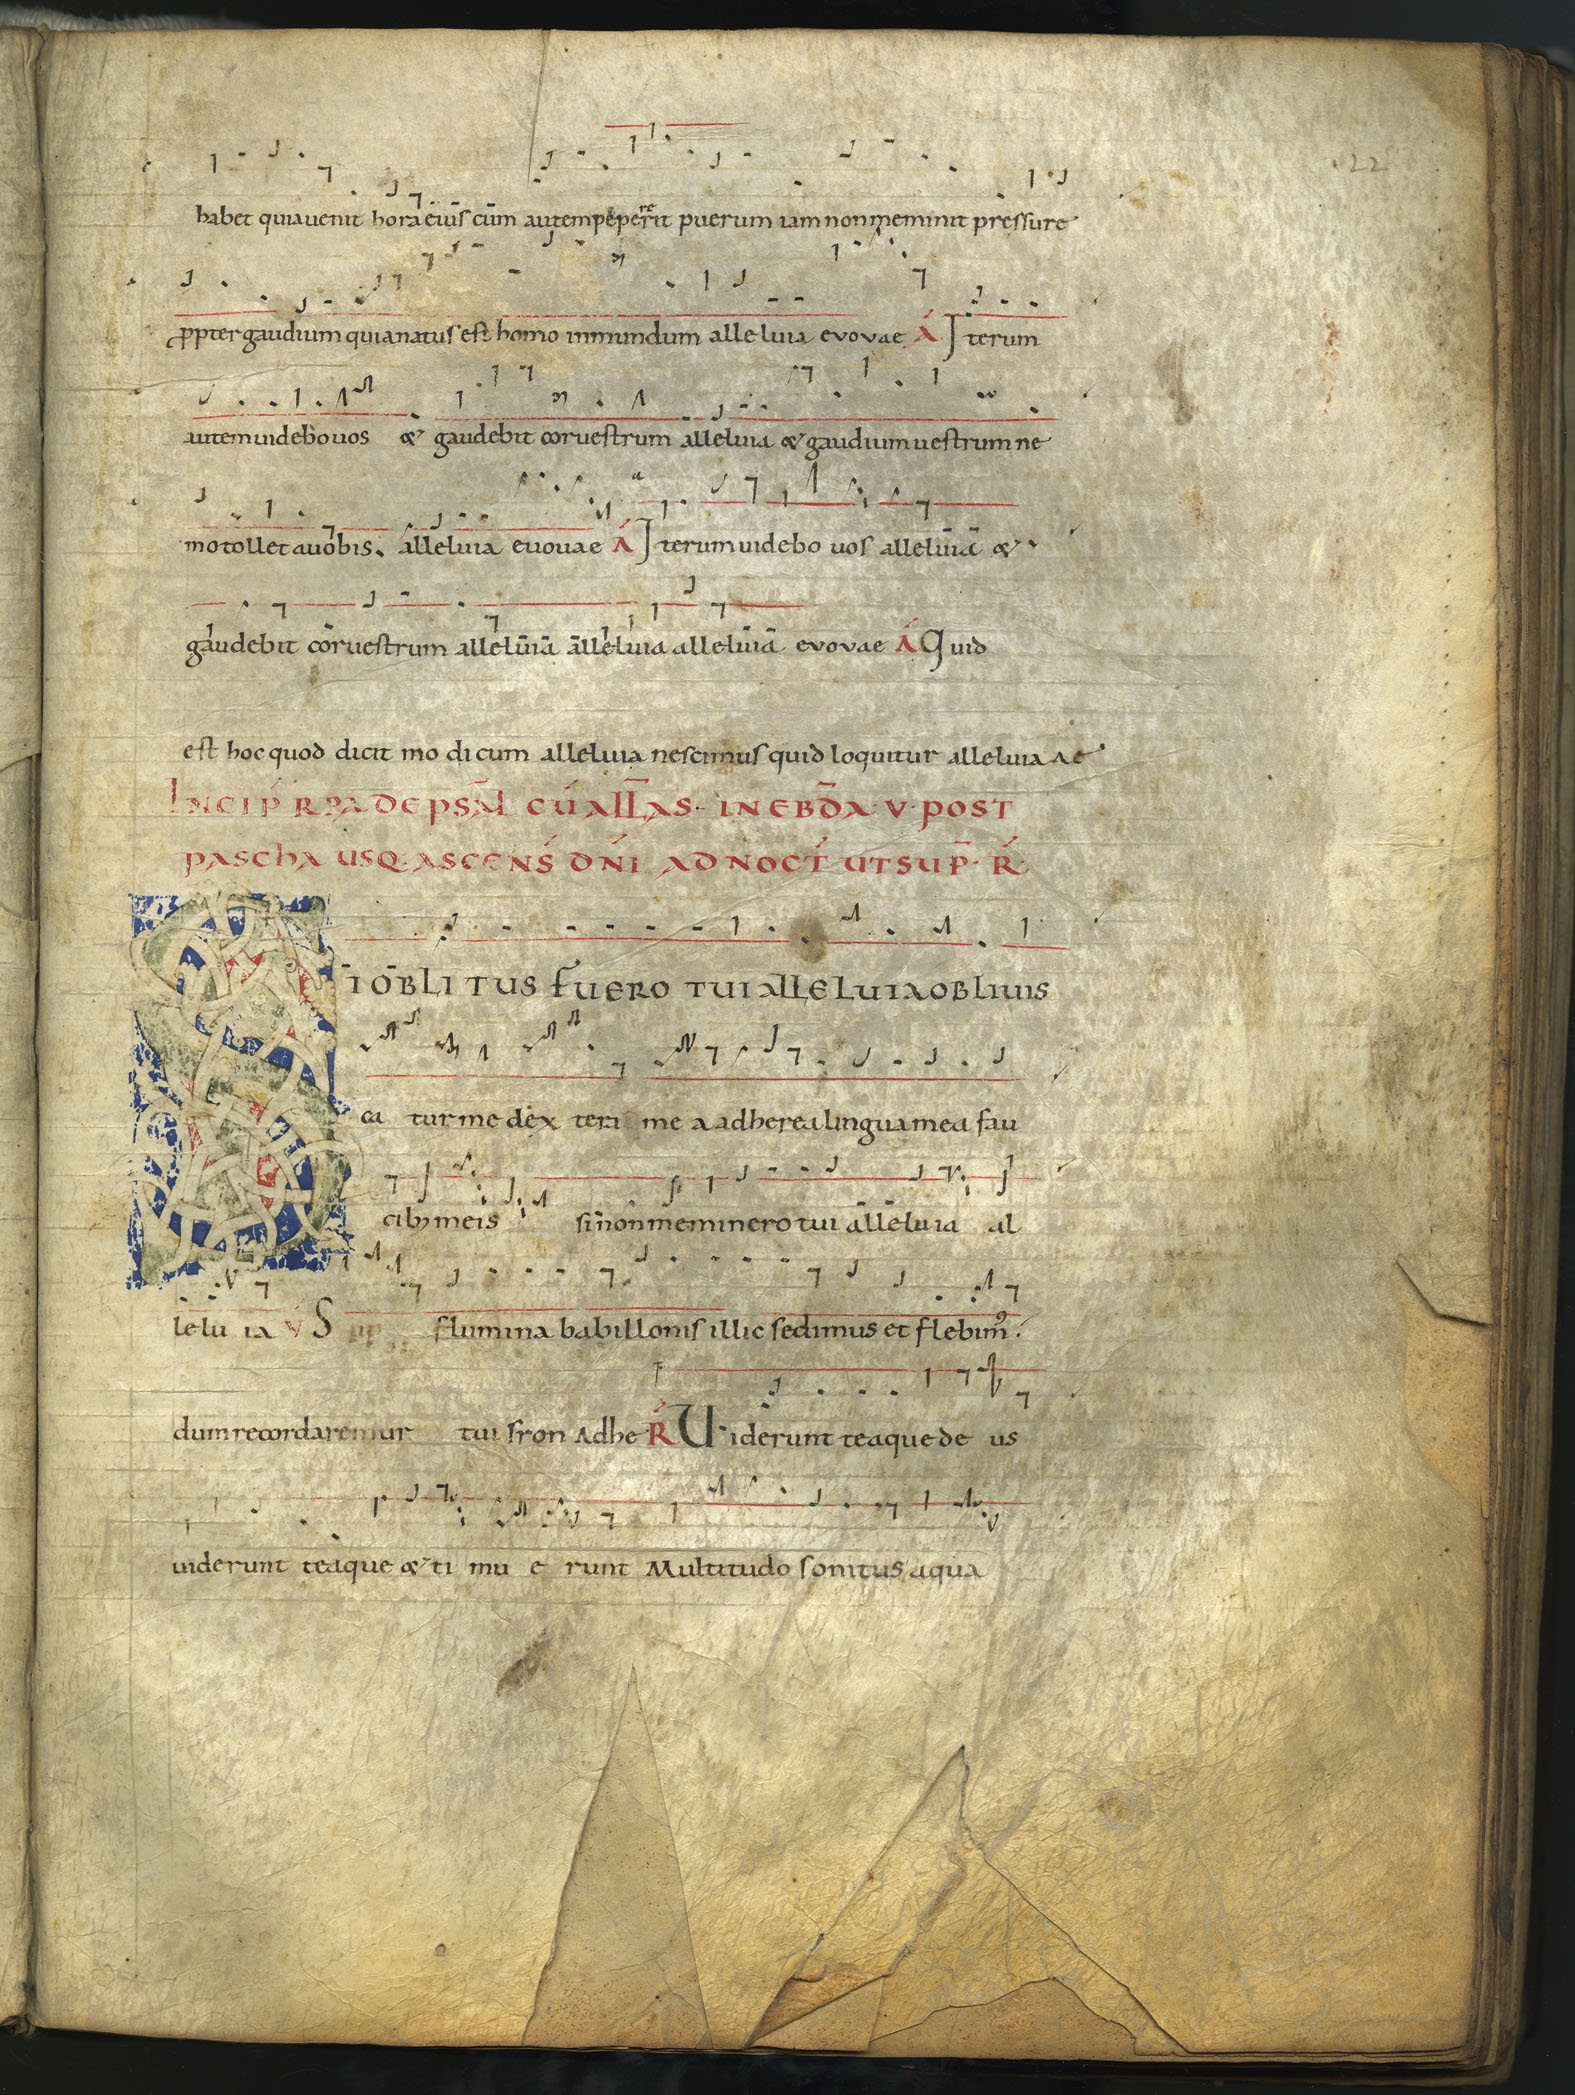 22
habet quia uenit hora eius cum autem pepererit puerum iam non meminit pressure
ppter gaudium quia natus est homo inmundum alleluia evovae A Iterum
autem uidebo uos & gaudebit cor uestrum alleluia & gaudium uestrum ne
mo tollet auobis. alleluia euouae A Iterum uidebo uos alleluia &
gaudebit cor uestrum alleluia alleluia alleluia evovae A Quid
est hoc quod dicit modicum alleluia nescimus quid loquitur alleluia ae
INCIP RPA DE PSAL CU ALLAS. IN EBDA. V. POST
PASCHA USQ. ASCENS DNI AD NOCT UT SUP. R
SI OBLITUS FUERO TUI ALLELUIA OBLIUIS
ca tur me dextera me a adherea lingua mea fau
cib; meis si non meminero tui alleluia al
leluia V S flumina babillonis illic sedimus et flebim9.
dum recordaremur tui sion Adhe R Uiderunt te aque deus
uiderunt te aque & timuerunt Multitudo sonitus aqua